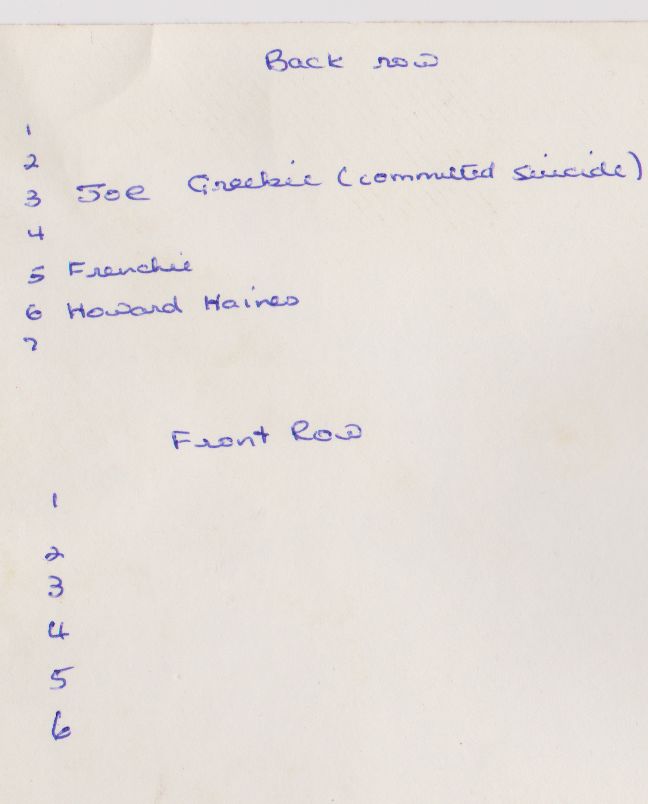 Back row
1
2
3 Joe Greekie (committed suicide)
4
5 Frenchie
6 Howard Haines
7
Front Row
1
2
3
4
5
6